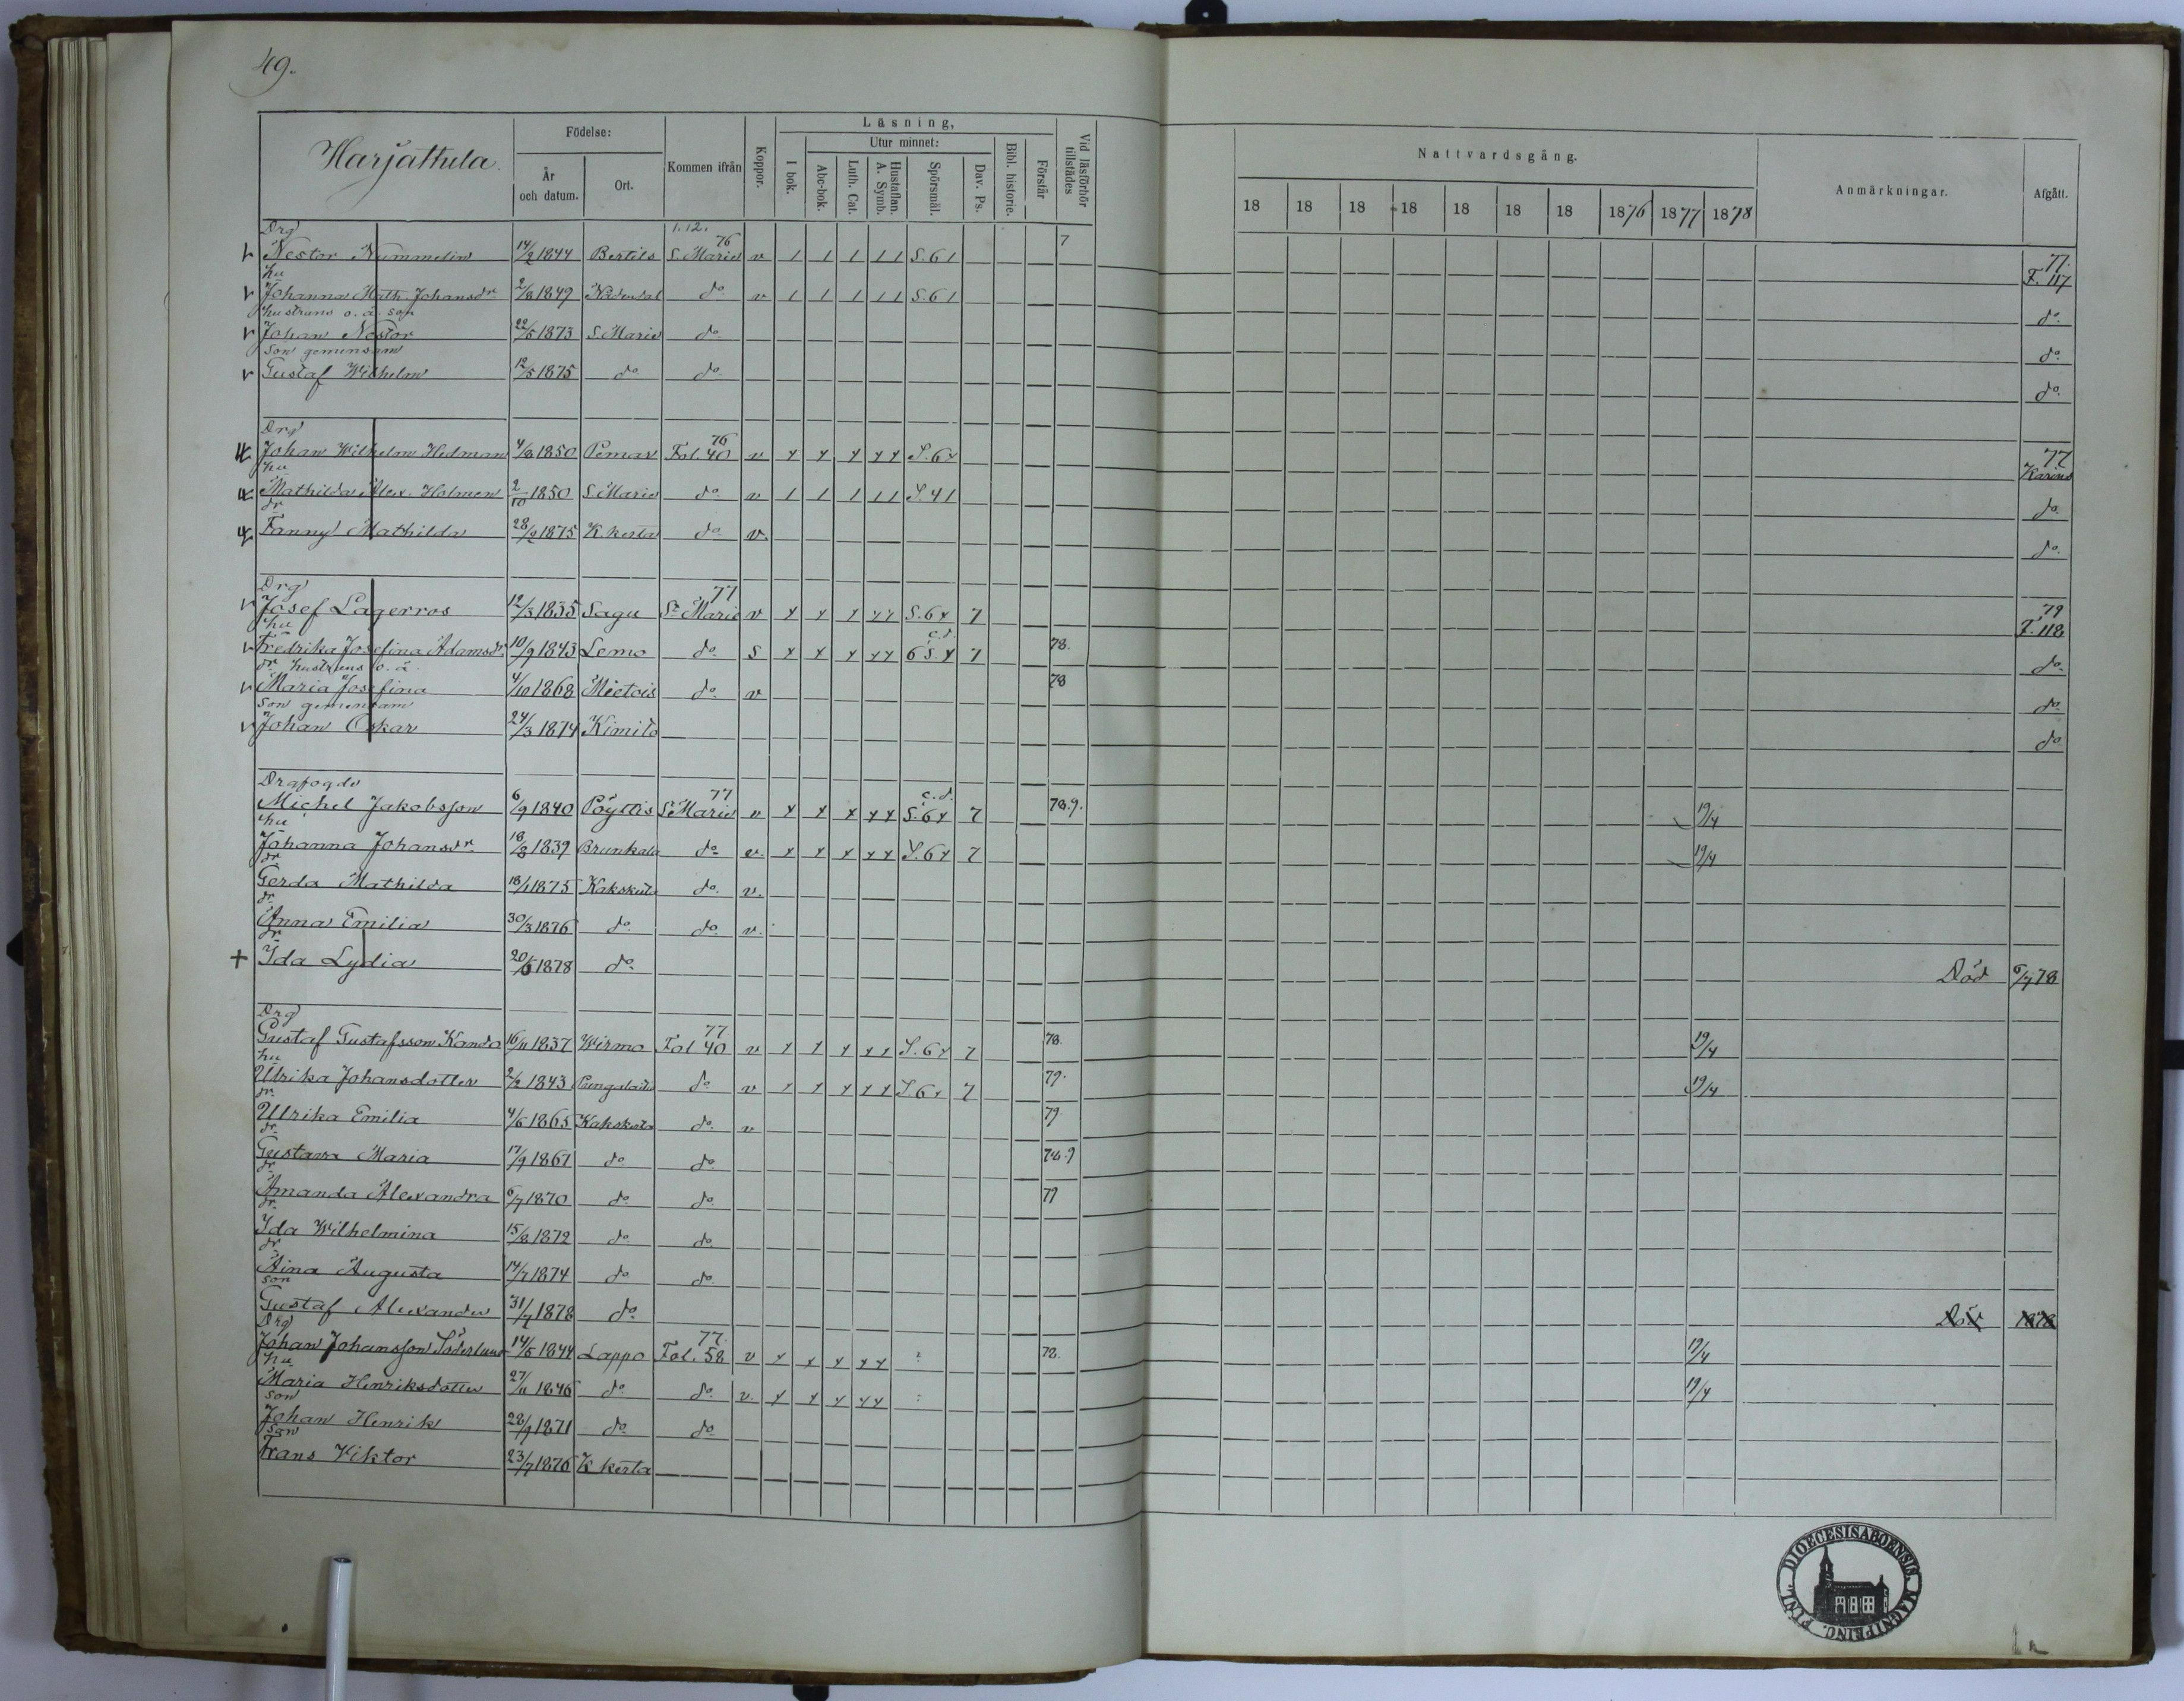 49.
Harjattula.
Födelse:
År och datum.
Ort.
Kommen ifrån
Koppor.
Läsning,
I bok.
Utur minnet:
Abc-bok.
Luth. Cat.
Hustaflan. A. Symb.
Spörsmål.
Dav. Ps.
Bibl. historie.
Förstår
Vid läsförhör tillstädes
Nattvardsgång.
18 18 18 18 18 18 18 1876 1877 1878
Anmärkningar.
Afgått.
Drg 1.12. 76 7
Nestor Nummelin 14/2 1844 Bertils S. Marie v 1 1 1 1 1 S. 6 1 77. F. 117
hu
Johanna Math. Johansdr 2/8 1849 Nådendal do v 1 1 1 1 1 S. 6 1 do
hustruns o. ä. son
Johan Nestor 22/5 1873 S. Marie do do
son gemensam
Gustaf Wilhelm 12/5 1875 do do do
Drg 76
Johan Wilhelm Hedman 4/8 1850 Pemar Fol. 40 v x x x x x S. 6 x 77 Karins
hu
Mathilda Alex. Holmen 2/10 1850 S. Marie do v 1 1 1 1 1 S. 4 1 do
dr
Fanny Mathilda 28/2 1875 K. kerta do v. do
Drg 77
Josef Lagerros 12/3 1835 Sagu St Marie v x x x x x S. 6 x 7 79 F. 118
hu c. d.
Fredrika Josefina Adamsdr 10/9 1843 Lemo do s x x x x x 6 S. x 7 78. do
dr hustruns o. ä.
Maria Josefina 4/10 1868 Mietois do v 78 do
son gemensam
Johan Oskar 24/3 1874 Kimito do
Drgfogde 77 c. d.
Michel Jakobsson 6/9 1840 Pöyttis St Marie v x x x x x S. 6 x 7 78.9. 19/4
hu
Johanna Johansdr 18/8 1839 Brunkala do v. x x x x x S. 6 x 7 19/4
dr
Gerda Mathilda 18/1 1875 Kakskerta do v.
dr
Anna Emilia 30/3 1876 do do v.
dr
+ Ida Lydia 20/5 1878 do Död 6/7 78
Drg 77.
Gustaf Gustafsson Kanda 16/11 1837 Wirmo Fol 40 v x x x x x S. 6 x 7 78. 19/4
hu
Ulrika Johansdotter 2/2 1843 Pungalaitio do v x x x x x S. 6 x 7 79. 19/4
dr
Ulrika Emilia 4/6 1865 Kakskerta do v 79.
dr
Gustava Maria 17/9 1867 do do 78.9
dr
Amanda Alexandra 6/7 1870 do do 79
dr
Ida Wilhelmina 15/8 1872 do do
dr
Aina Augusta 14/7 1874 do do
son
Gustaf Alexander 31/7 1878 do Död 1878
Drg 77.
Johan Johansson Söderlund 14/5 1844 Lappo Fol. 58 v x x x x x 78. 19/4
hu
Maria Henriksdotter 27/11 1846 do do v. x x x x x 19/4
son
Johan Henrik 28/9 1871 do do
son
Frans Viktor 23/7 1876 K kerta
SIGIL. DIOECESIS ABOENSIS. MAGNI PRINC. FINL.